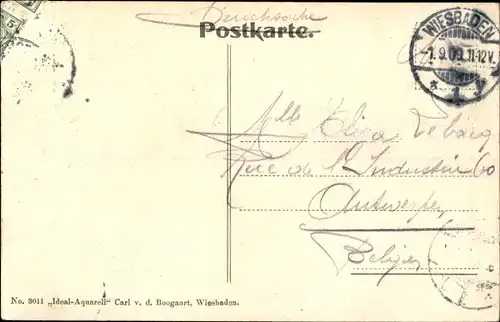 Drucksache
Postkarte.
WIESBADEN
-1.9.09.11-12V.
* 1 y
5
Mlle Elisa
Rue de l'Industrie 60
Antwerpen
Belgien
No. 3011 „Ideal-Aquarell" Carl v. d. Boogaart, Wiesbaden.